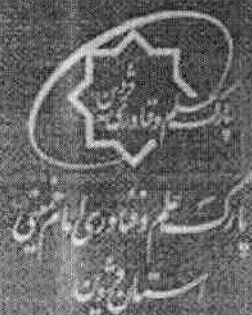 قزوین
پارک علم و فناوری
پارک علم و فناوری امام خمینی
استان قزوین